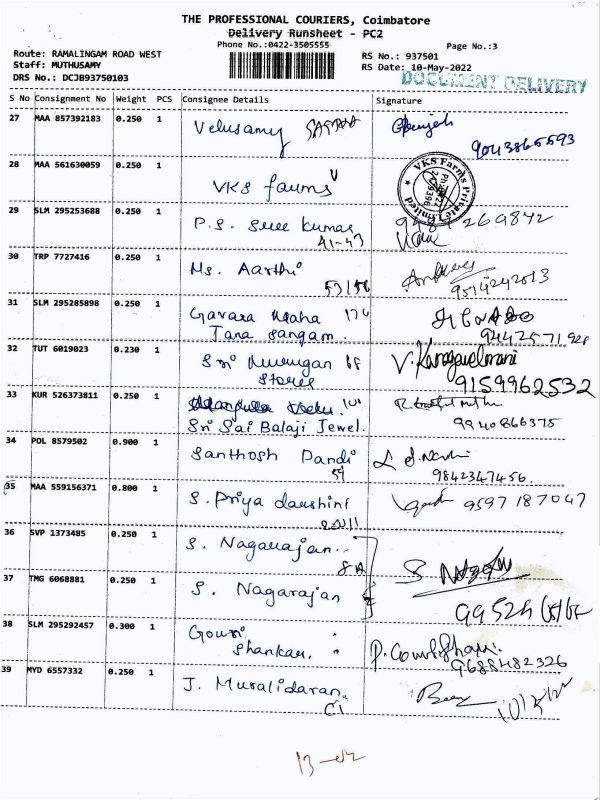 THE PROFESSIONAL COURIERS, Coimbatore
Delivery Runsheet - PC2
Phone No.:0422-3505555
Page No.:3
Route: RAMALINGAM ROAD WEST
Staff: MUTHUSAMY
DRS No.: DCJB93750103
RS No.: 937501
RS Date: 10-May-2022
DOCUMENT DELIVERY
S No Consignment No Weight PCS Consignee Details Signature
27 MAA 857392183 0.250 1 Velusamy
9043865593
28 MAA 561630059 0.250 1 VKS farms
VKS Farms Private Limited
29 SLM 295253688 0.250 1 P.S. Sree kumar
41-43
30 TRP 7727416 0.250 1 Ms. Aarthi
53/56 9514242013
31 SLM 295285898 0.250 1 Gavara Maha 176
Jana Sangam.
32 TUT 6019023 0.230 1 Sri Murugan 68 V. Kanagavelmani
Stores 9159962532
33 KUR 526373811 0.250 1
Sri Sai Balaji Jewel. 9940866375
34 POL 8579502 0.900 1 Santhosh Pandi
54 9842347456.
35 MAA 559156371 0.800 1 S. Priya darshini 9597187047
36 SVP 1373485 0.250 1 S. Nagarajan
8A
37 TMG 6068881 0.250 1 S. Nagarajan
38 SLM 295292457 0.300 1 Gowri
Shankar. 9688482326
39 MYD 6557332 0.250 1 J. Muralidaran
C1 10/5/22